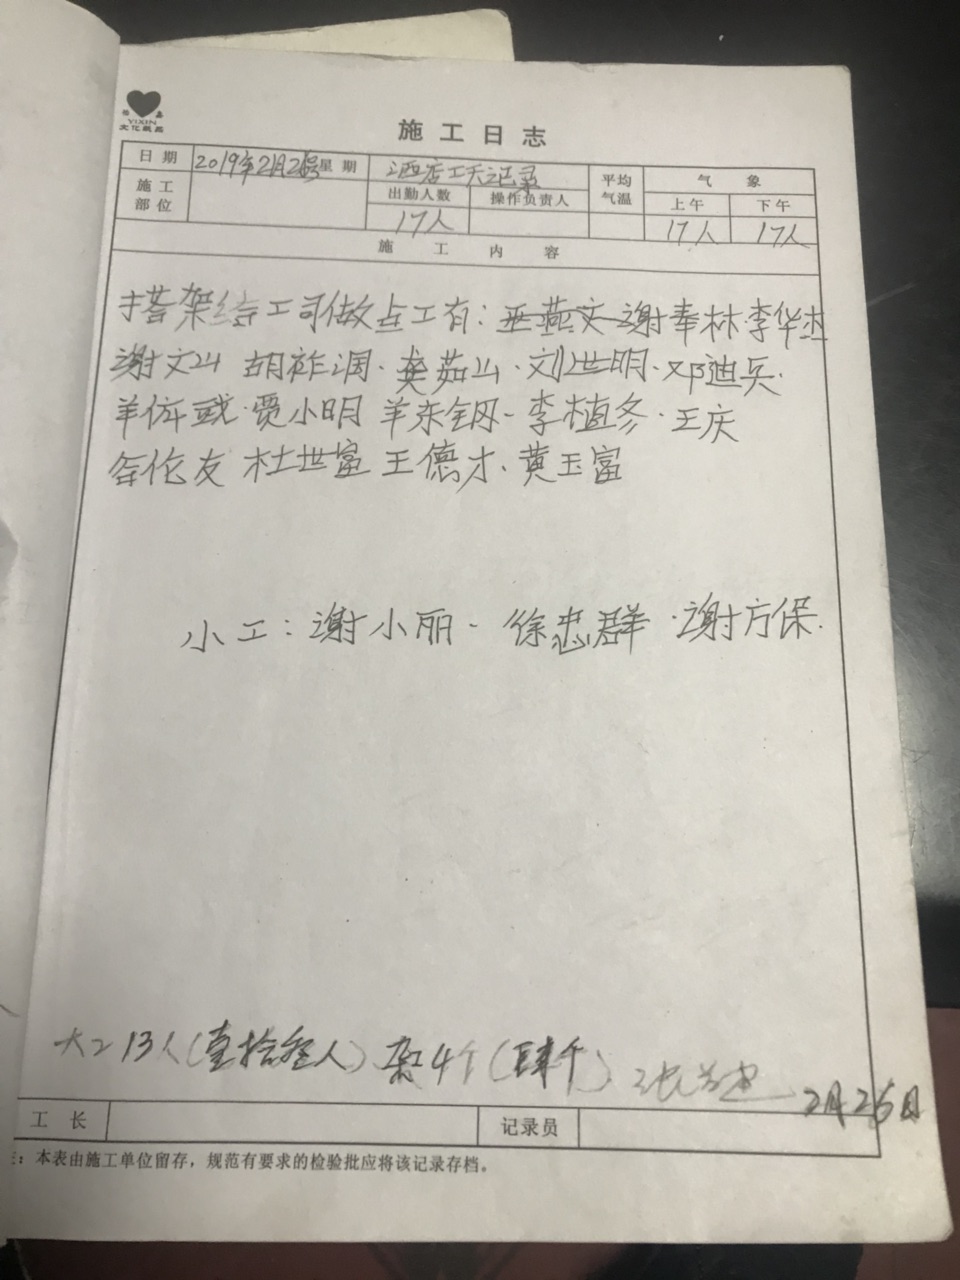 YIXIN
文化纸品
施工日志
日期 2019年2月26号 星期 酒店工天记录 平均气温 气象
施工部位 出勤人数 操作负责人 上午 下午
17人 17人 17人
施工内容
搭架给工司做点工有: 谢奉林·李华杰
谢文山 胡祚润·樊茹山·刘世明·邓迪兵·
贾小明 羊东钢·李植冬·王庆
伦友 杜世富 王德才、黄玉富
小工: 谢小丽- 徐忠群·谢方保.
大工13人(壹拾叁人) 杂工4个(肆个) 2月26日
工长 记录员
注: 本表由施工单位留存, 规范有要求的检验批应将该记录存档。